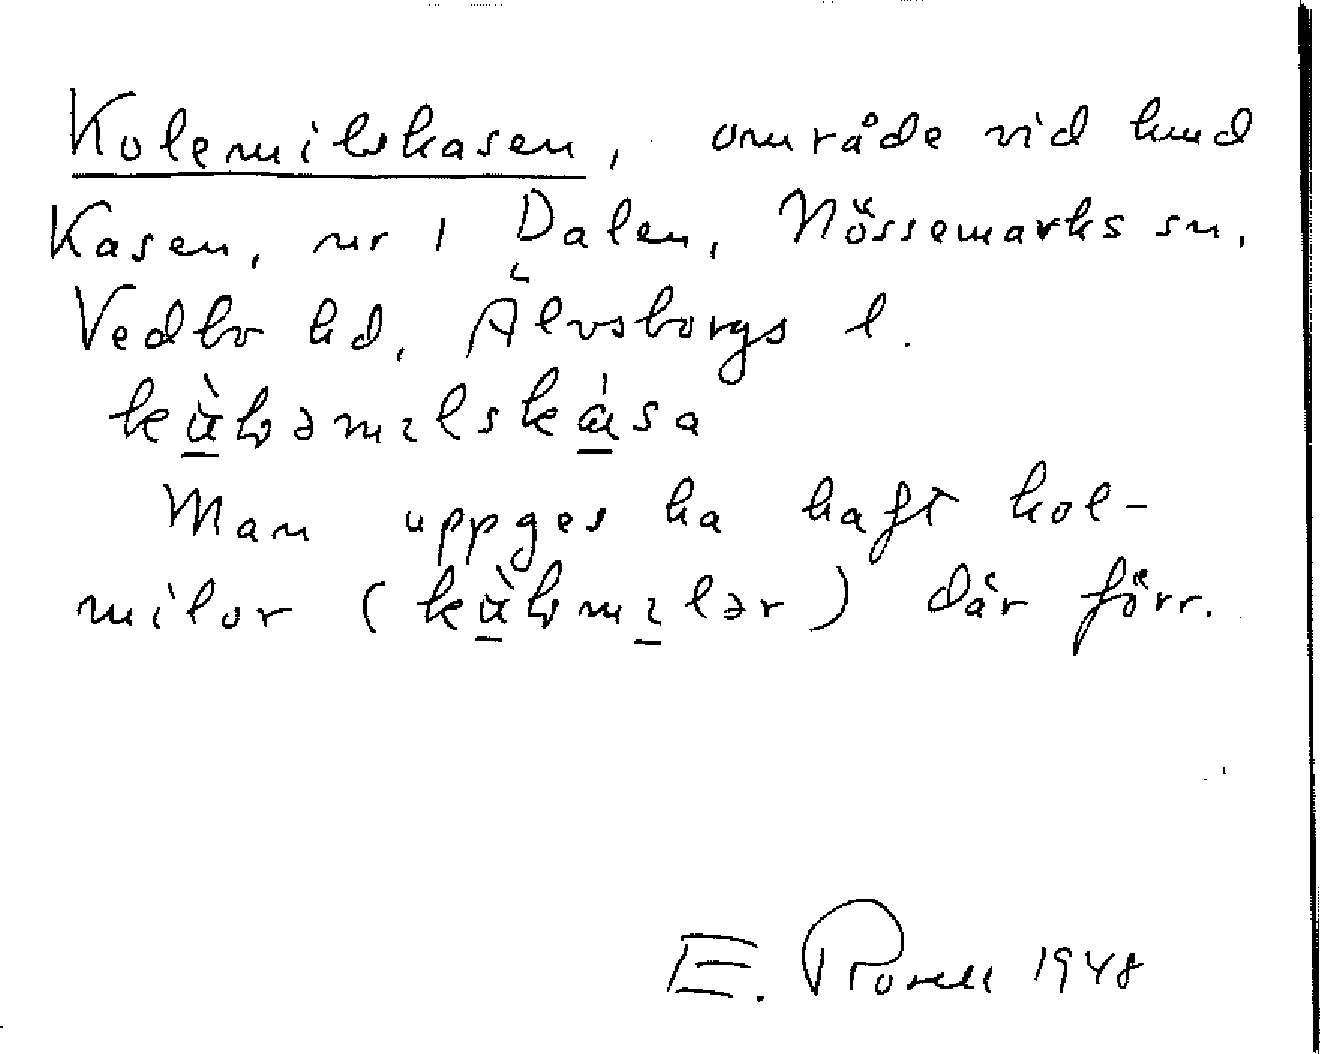 Kolemilskasen, område vid hmd
Kasen, nr 1 Dalen, Nössemarks sn,
Vedbo hd, Älvsborgs l.
Man uppges ha haft kol-
milor ( ) där förr.
E. Rosell 1948